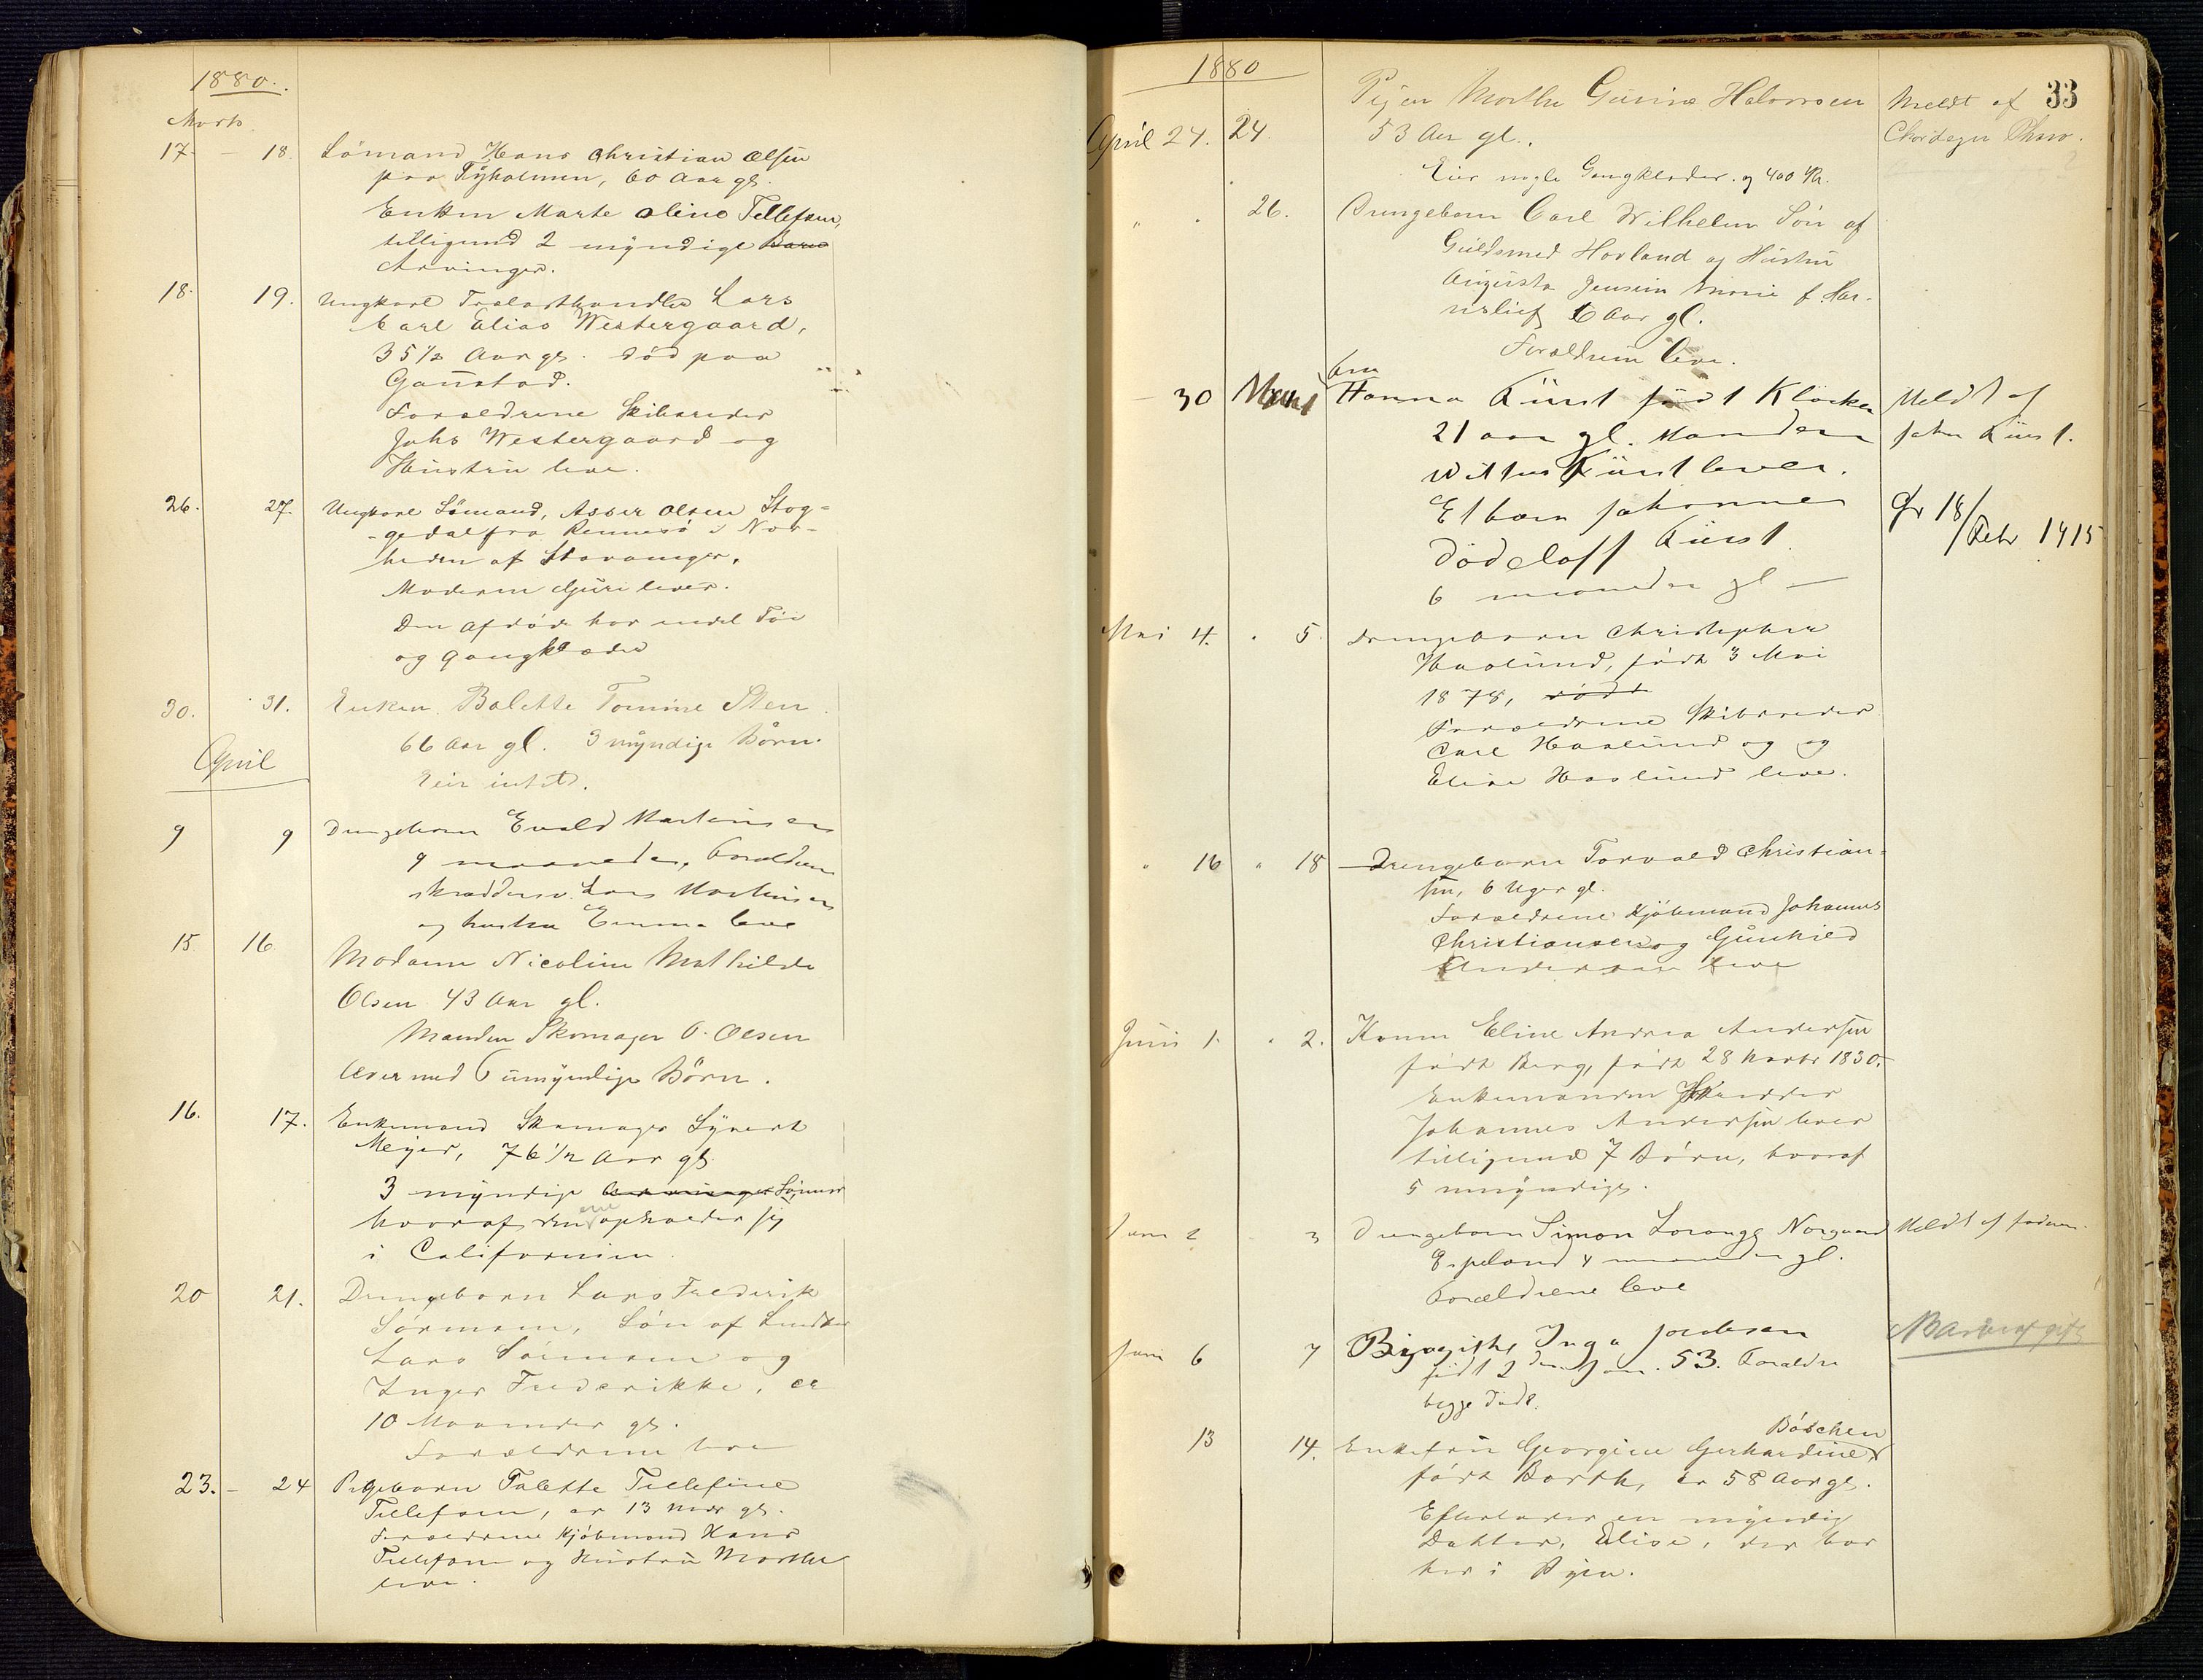 1880.
Marts
17 - 18. Sömand Hans Christian Olsen
paa Tyholmen, 60 Aar gl.
Enken Marte Oline Tellefsen,
tilligemed 2 myndige Barn
Arvinger.
18. 19. Ungkarl Trælasthandler Lars
Carl Elias Westergaard,
35 1/2 Aar gl. död paa
Gaustad.
Forældrene Skibsreder
Johs Westergaard og
Hustru leve.
26. 27. Ungkarl Sömand, Asser Olsen Stog-
-gedal fra Rennesö i Nær-
heden af Stavanger,
Moderen Guri lever.
Den afdöde har endel Töi
og Gangklæder
30. 31. Enken Bolette Tomine Sten
66 Aar gl. 3 myndige Börn.
Eier intet.
April
9 9 Drengebarn Evald Martinsen
9 maaneder, Forældrene
skrædderm. Lars Martinsen
og hustru Emma leve
15 16 Madame Nicoline Mathilde
Olsen 43 Aar gl.
Manden Skomager O. Olsen
lever med 6 umyndige Börn.
16. 17. Enkemand Skomager Syvert
Meyer, 76 1/2 Aar gl.
3 myndige Arvinger Sönner
hvoraf den ene opholder sig
i Californien.
20 21. Drengebarn Lars Frederik
Sörensen, Sön af
Lars Sörensen og
Inger Frederikke, er
10 Maaneder gl.
Forældrene leve
23. - 24 Pigebarn Talette Tellefine
Tellefsen, er 13 Mdr gl.
Forældrene Kjöbmand Hans
Tellefsen og Hustru Marthe
leve.
1880
33
April 24. 24. Pigen Marthe Gurine Halvorsen
53 Aar gl.
Meldt af
Chordegn Thero.
Eier nogle Gangklæder og 400 Kr.
" 26. Drengebarn Carl Wilhelm Sön af
Guldsmed Hovland og Hustru
Augusta Jensine Marie f. Har-
6 Aar gl.
Forældrene leve.
- 30 Fru
Hanna Fürst födt Klöcker
21 aar gl. Manden
Fürst lever.
Et barn Johannes
Fürst
6 maaneder gl -
Meldt af
John Fürst.
18/Febr 1915
Mai 4. " 5. Drengebarn Christopher
Haslund, födt 3 Mai
1878, födt
Forældrene Skibsreder
Carl Haslund og og
Elise Haslund leve.
" 16 " 18 Drengebarn Torvald Christian-
sen, 6 Uger gl.
Forældrene Kjöbmand Johannes
Christiansen og Gunhild
Andersen leve
Juni 1. " 2. Konen Eline Andrea Andersen
födt Berg, födt 28 Novbr 1830.
Enkemanden Skrædder
Johannes Andersen lever
tilligemed 7 Börn, hvoraf
5 umyndige.
Juni 2 3 Drengebarn Simon Lorange Norgaard
Espeland 4 maaneder gl.
Forældrene leve
Meldt af faderen
Juni 6 7 Inga Jacobsen
födt 2den Jan. 53. Forældre
begge döde.
13 14. Enkefru Georgine Gerhardine Böschen
födt Barth, er 58 Aar gl.
Efterlader en myndig
Datter, Elise, der bor
her i Byen.